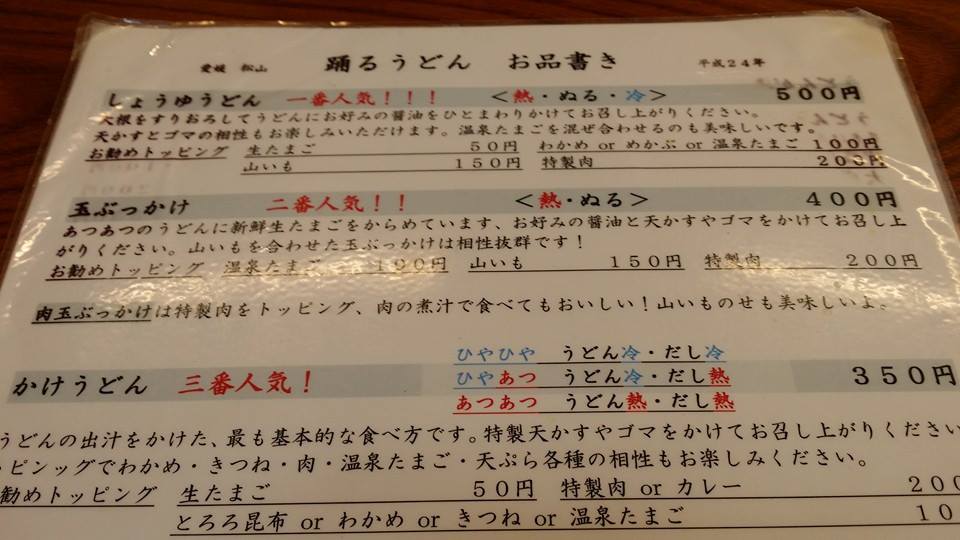 愛媛 松山 踊るうどん お品書き 平成24年
しょうゆうどん 一番人気！！！ ＜熱・ぬる・冷＞ 500円
大根をすりおろしてうどんにお好みの醤油をひとまわりかけてお召し上がりください。
天かすとゴマの相性もお楽しみいただけます。温泉たまごを混ぜ合わせるのも美味しいです。
お勧めトッピング 生たまご 50円 わかめ or めかぶ or 温泉たまご 100円
山いも 150円 特製肉 200円
玉ぶっかけ 二番人気！！ ＜熱・ぬる＞ 400円
あつあつのうどんに新鮮生たまごをからめています、お好みの醤油と天かすやゴマをかけてお召し上
がりください。山いもを合わせた玉ぶっかけは相性抜群です！
お勧めトッピング 温泉たまご 100円 山いも 150円 特製肉 200円
肉玉ぶっかけは特製肉をトッピング、肉の煮汁で食べてもおいしい！山いものせも美味しいよ。
ひやひや うどん冷・だし冷
かけうどん 三番人気！ ひやあつ うどん冷・だし熱 350円
あつあつ うどん熱・だし熱
うどんの出汁をかけた、最も基本的な食べ方です。特製天かすやゴマをかけてお召し上がりください
ッピンッグでわかめ・きつね・肉・温泉たまご・天ぷら各種の相性もお楽しみください。
勧めトッピング 生たまご 50円 特製肉 or カレー 200
とろろ昆布 or わかめ or きつね or 温泉たまご 10